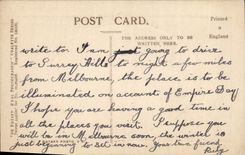 POST CARD.
Printed in England
THE ADDRESS ONLY TO BE WRITTEN HERE.
write to. I am going to drive
to Surrey Hills to night a few miles
from Melbourne, the place is to be
illuminated on account of Empire Day
I hope you are having a good time in
all the places you visit. I suppose you
will be in Melbourne soon, the winter is
just beginning to set in now. your true friend